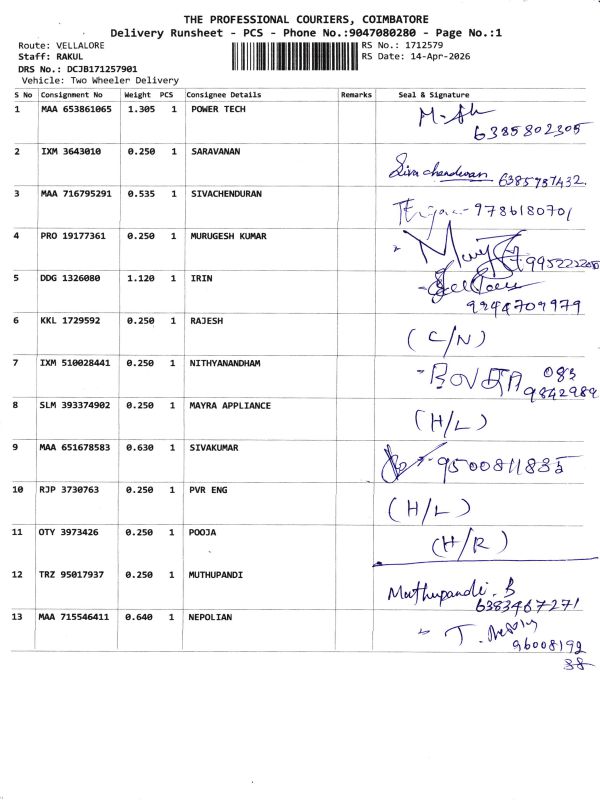 THE PROFESSIONAL COURIERS, COIMBATORE
Delivery Runsheet - PCS - Phone No.:9047080280 - Page No.:1
Route: VELLALORE
Staff: RAKUL
DRS No.: DCJB171257901
Vehicle: Two Wheeler Delivery
RS No.: 1712579
RS Date: 14-Apr-2026
S No Consignment No Weight PCS Consignee Details Remarks Seal & Signature
1 MAA 653861065 1.305 1 POWER TECH
6385802305
2 IXM 3643010 0.250 1 SARAVANAN
Siva chandwan 6385787432.
3 MAA 716795291 0.535 1 SIVACHENDURAN
9786180701
4 PRO 19177361 0.250 1 MURUGESH KUMAR
5 DDG 1326080 1.120 1 IRIN
9244709979
6 KKL 1729592 0.250 1 RAJESH
(C/N)
7 IXM 510028441 0.250 1 NITHYANANDHAM
083
9842989
8 SLM 393374902 0.250 1 MAYRA APPLIANCE
(H/L)
9 MAA 651678583 0.630 1 SIVAKUMAR
9500811835
10 RJP 3730763 0.250 1 PVR ENG
(H/L)
11 OTY 3973426 0.250 1 POOJA
(H/R)
12 TRZ 95017937 0.250 1 MUTHUPANDI
Muthupandi. B
6383467271
13 MAA 715546411 0.640 1 NEPOLIAN
96008192
38